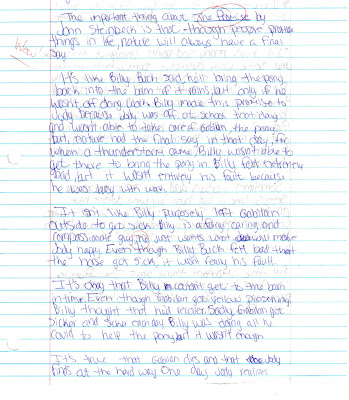 The important thing about The Promise by
John Steinbeck is that though people promise
things in life, nature will always have a final
say.
Wow
It's like Billy Buck said, he'll bring the pony
back into the barn if it rains, but only if he
wasn't off doing work. Billy made this promise to
Jody because Jody was off at school that day
and wasn't able to take care of Gabilan the pony
but, nature had the final say in that day, for
when a thunderstorm came Billy wasn't able to
get there to bring the pony in. Billy felt extremely
bad, but it wasn't entirely his fault because
he was busy with work.
It isn't like Billy purposely left Gabilain
outside to get sick. Billy is a caring and
compassionate guy, he just wants what will make
Jody happy. Even though Billy Buck felt bad that
the horse got sick, it wasn't really his fault.
It's okay that Billy couldn't get to the barn
in time. Even though Gabilan got
Billy thought that he'd recover. Sadly Gabilan got
sicker and sicker each day. Billy was doing all he
could to help the pony but it wasn't enough
It's true that Gabilan dies and that Jody
finds out the hard way. One day Jody realizes